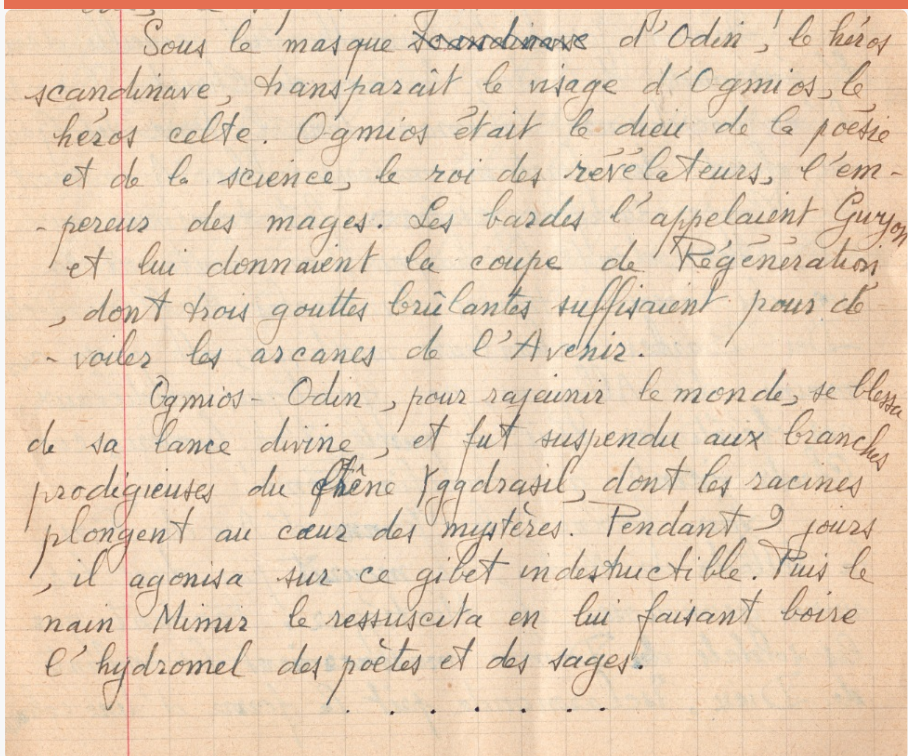 Sous le masque scandinave d'Odin, le héros
scandinave, transparaît le visage d'Ogmios, le
héros celte. Ogmios était le dieu de la poésie
et de la science, le roi des révélateurs, l'em-
-pereur des mages. Les bardes l'appelaient Gwyon
et lui donnaient la coupe de Régénération
, dont trois gouttes brûlantes suffisaient pour dé-
-voiler les arcanes de l'Avenir.
Ogmios-Odin, pour rajeunir le monde, se blessa
de sa lance divine, et fut suspendu aux branches
prodigieuses du frêne Yggdrasil, dont les racines
plongent au cœur des mystères. Pendant 9 jours
, il agonisa sur ce gibet indestructible. Puis le
nain Mimir le ressuscita en lui faisant boire
l'hydromel des poètes et des sages.
. . . . . . .